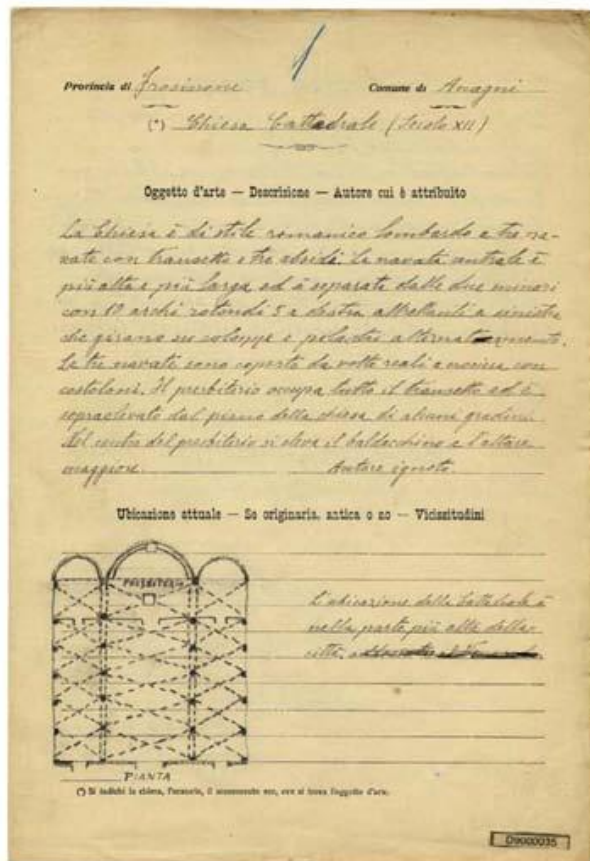 1
Provincia di Frosinone Comune di Anagni
(*) Chiesa Cattedrale (Secolo XII)
Oggetto d'arte — Descrizione — Autore cui è attribuito
La Chiesa è di stile romanico lombardo a tre na-
vate con transetto e tre absidi. La navata centrale è
più alta e più larga ed è separata dalle due minori
con 10 archi rotondi 5 a destra altrettanti a sinistra
che girano su colonne e pilastri alternatamente.
Le tre navate sono coperte da volte reali a crociera con
costoloni. Il presbiterio occupa tutto il transetto ed è
sopraelevato dal piano della chiesa di alcuni gradini.
Nel centro del presbiterio si eleva il baldacchino e l'altare
maggiore. Autore ignoto.
Ubicazione attuale — Se originaria, antica o no — Vicissitudini
PRESBITERIO
L'ubicazione della Cattedrale è
nella parte più alta della
città.
PIANTA
(*) Si indichi la chiesa, l'oratorio, il monumento ecc, ove si trova l'oggetto d'arte.
09000035